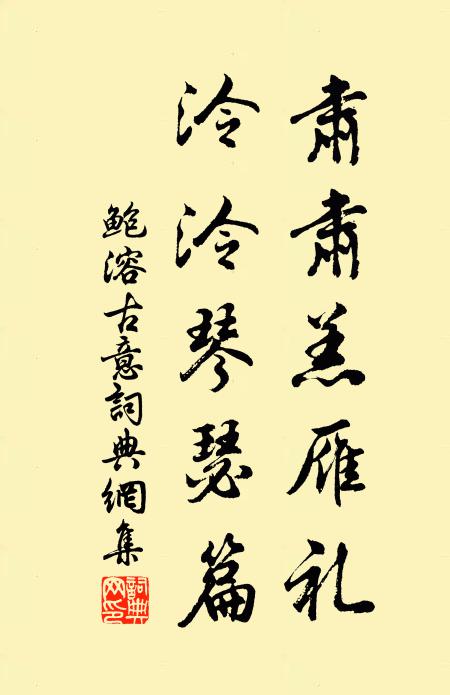 肅肅羔雁礼
泠泠琴瑟篇
鲍溶古意詞典網集
詞典网印